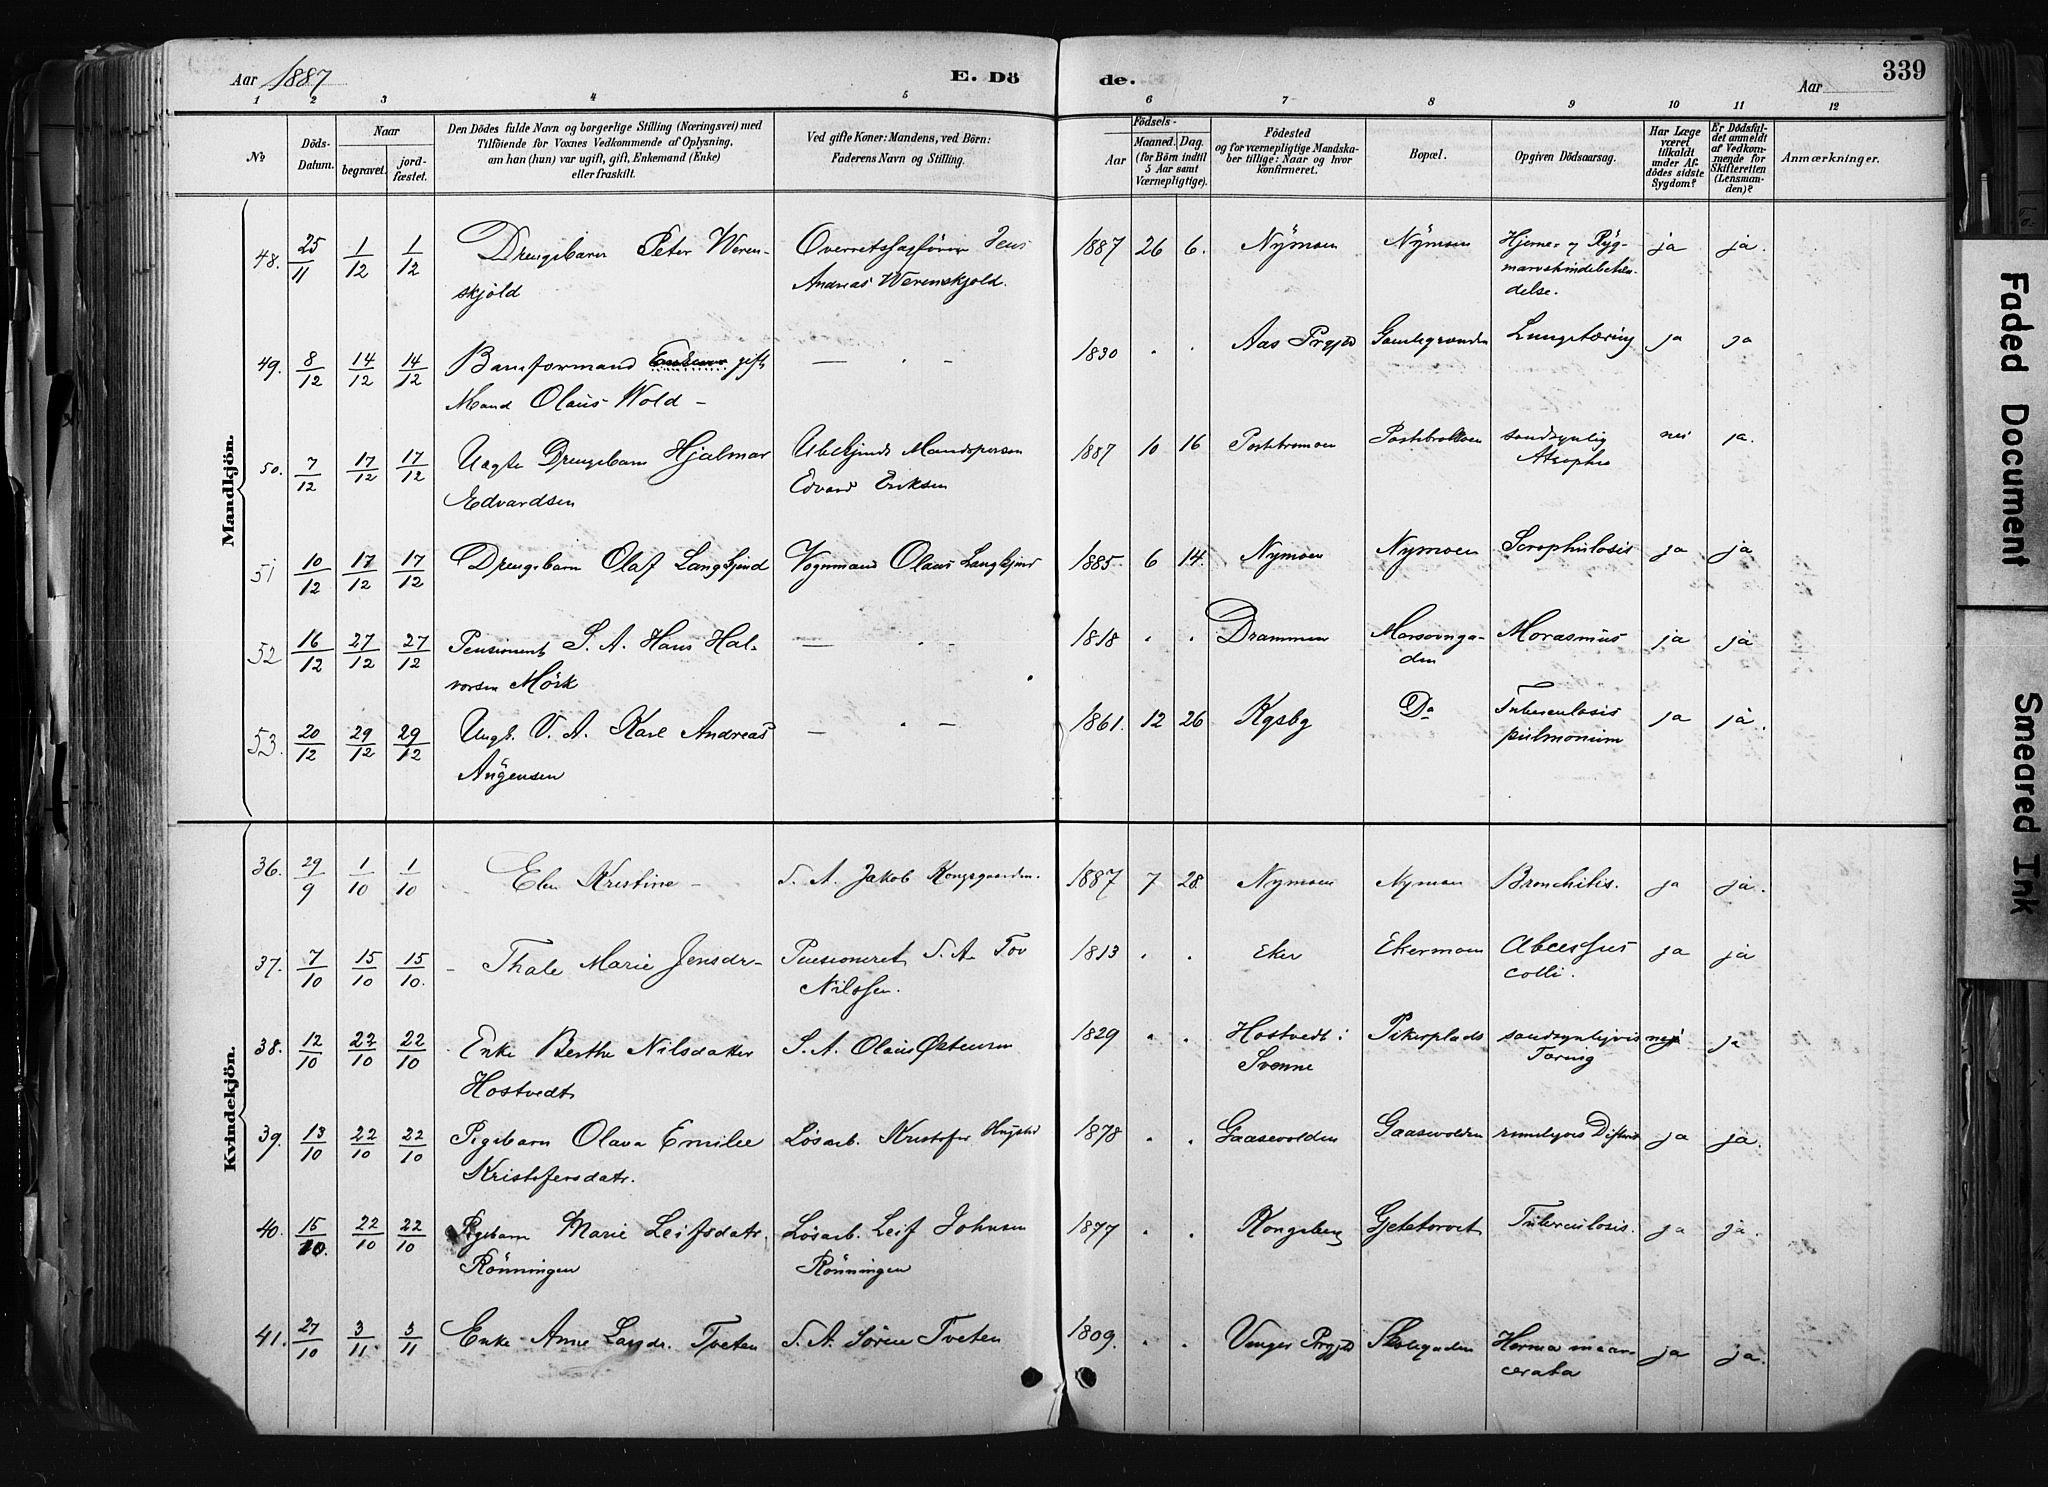 Aar 1887 E. Dö de. Aar 339
1 2 3 4 5 6 7 8 9 10 11 12
No
Döds-Datum.
Naar
begravet.
jord-fæstet.
Den Dödes fulde Navn og borgerlige Stilling (Næringsvei) med
Tilföiende for Voxnes Vedkommende af Oplysning,
om han (hun) var ugift, gift, Enkemand (Enke)
eller fraskilt.
Ved gifte Koner: Mandens, ved Börn:
Faderens Navn og Stilling.
Födsels-
Aar
Maaned. Dag.
(for Börn indtil
5 Aar samt
Værnepligtige).
Födested
og for værnepligtige Mandska-
ber tillige: Naar og hvor
konfirmeret.
Bopæl.
Opgiven Dödsaarsag.
Har Læge
været
tilkaldt
under Af-
dödes sidste
Sygdom?
Er Dödsfal-
det anmeldt
af Vedkom-
mende for
Skifteretten
(Lensman-
den)?
Anmærkninger.
Mandkjön.
48. 25/11 1/12 1/12 Drengebarn Peter Weren- Overretssagfører Jens 1887 26 6. Nÿmoen Nÿmoen Hjerne- og Rÿg- ja ja.
skjold Andreas Werenskjold. marvshindebeten-
delse.
49. 8/12 14/12 14/12 Baneformand gift — " — 1830 " " Aas Prgjd Gamlegrænden Lungetæring ja ja
Mand Olaus Wold -
50. 7/12 17/12 17/12 Uægte Drengebarn Hjalmar Ubekjendt Mandsperson 1887 10 16 sandsynlig nei ja.
Edvardsen Edvard Eriksen Atrophie
51 10/12 17/12 17/12 Drengebarn Olaf Langkjend Vognmand Olaus Langkjend 1885. 6 14. Nymoen Nymoen Scrophulosis ja ja
52 16/12 27/12 27/12 Pensionert S. A. Hans Hal- — " — 1818 " " Drammen Morasmus ja ja
vorsen Mörk den
53. 20/12 29/12 29/12 Ungk. Karl Andreas — " — 1861. 12 26 Kgsbg Do Tuberculosis ja ja.
pulmonium
Kvindekjön.
36. 29/9 1/10 1/10 Elen Kristine - S. A. Jakob Kongsgaarden. 1887 7 28 Nymoen Nymoen Bronchitis. ja ja.
37. 7/10 15/10 15/10. Thale Marie Jensdr- Pensioneret S. A. Tov 1813 " " Eker Ekermoen Abcessus ja ja
Nilssen. colli.
38. 12/10 22/10 22/10 Enke Berthe Nilsdatter S. A. Olaus Østensen 1829 " " Hostvedt i Pikerplads sandsynligvis nej ja
Hostvedt Svenne Tæring
39. 13/10 22/10 22/10 Pigebarn Olava Emilie Løsarb. Kristofer 1878 " " Gaasevolden Gaasevolden ja ja.
Kristofersdatr.
40. 15/10. 22/10 22/10 Pigebarn Marie Leifsdatr. Løsarb. Leif Johnsen 1877 " " Kongsberg Gjetetorvet Tuberculosis. ja ja.
Rönningen Rönningen
41. 27/10 3/11 5/11 Enke Anne Tveten S. A. Sören Tveten 1809. " " Prgjd Skolegaden ja ja.
Faded Document
Smeared Ink